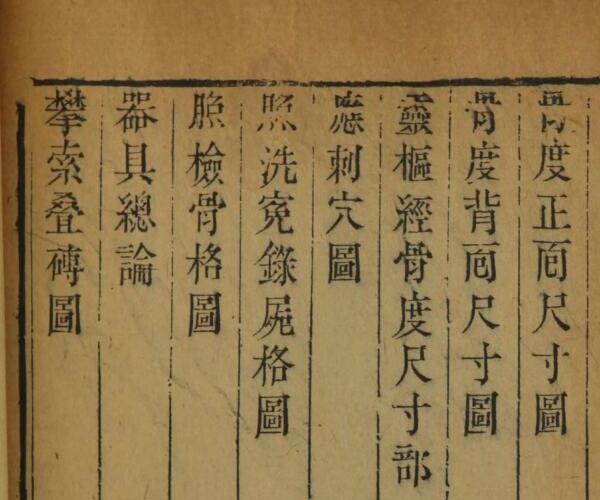 骨度正面尺寸圖
骨度背面尺寸圖
靈樞經骨度尺寸部
應刺穴圖
照洗寃錄屍格圖
照檢骨格圖
器具總論
攀索叠磚圖